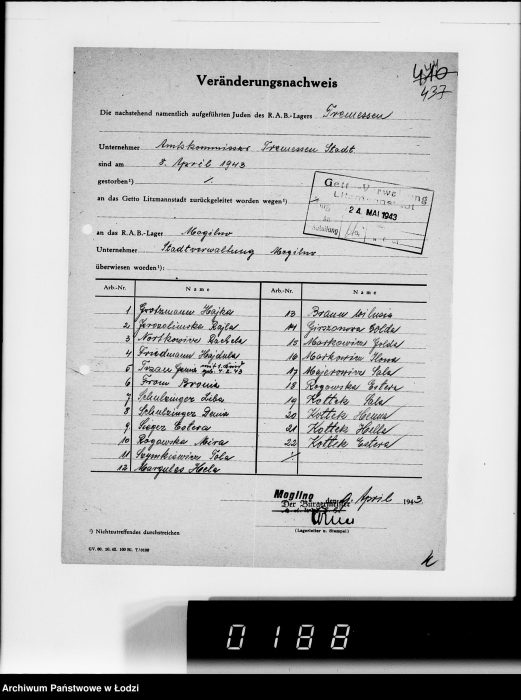 440
437
Veränderungsnachweis
Die nachstehend namentlich aufgeführten Juden des R.A.B.-Lagers Tremessen
Unternehmer Amtskommissar Tremessen Stadt.
sind am 8. April 1943
gestorben¹) /.
an das Getto Litzmannstadt zurückgeleitet worden wegen¹)
24. MAI 1943
an das R.A.B.-Lager Mogilno
Unternehmer Stadtverwaltung Mogilno
überwiesen worden¹):
Arb.-Nr. Name Arb.-Nr. Name
1 Grotzmann Hajka
2 Jerozolimska Rajla
3 Nortkowicz Rachela
4 Friedmann Hajdula
5 Tozan Genia mit 1. Kind geb. 4.2.43
6 From Bronia
7 Schulzinger Liba
8 Schulzinger Denia
9 Sieger Estera
10 Rogowska Mira
11 Szymkiewicz Tola
12 Margules Hela
13 Braun Wilusia
14 Girszonova Golda
15 Markowicz Golda
16 Markowicz Ilona
17 Majerowicz Sala
18 Rogowska Estera
19 Kottek Sala
20 Kottek Henna
21 Kottek Hella
22 Kottek Estera
Mogilno
Der Bürgermeister
den April 1943
(Lagerleiter u. Stempel)
¹) Nichtzutreffendes durchstreichen
0188
Archiwum Państwowe w Łodzi